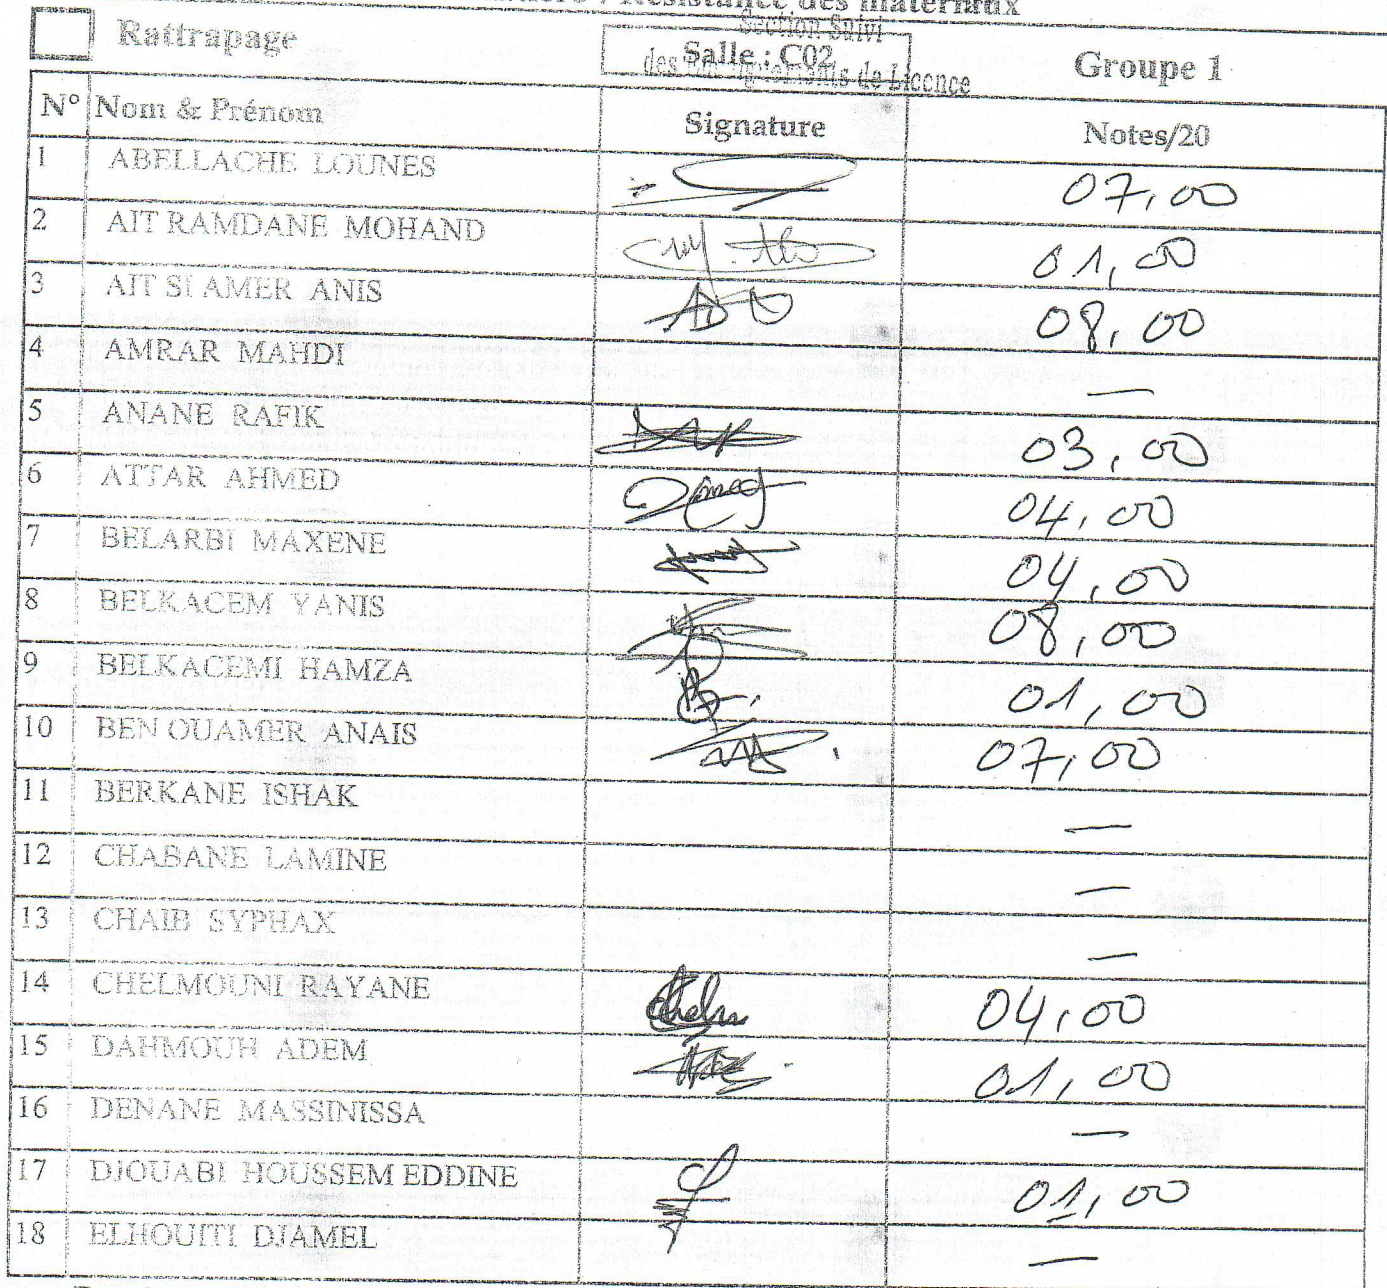 Résistance des matériaux
Section Suivi
Rattrapage Salle : C02 Groupe 1
des de Licence
N° Nom & Prénom Signature Notes/20
1 ABELLACHE LOUNES 07,00
2 AIT RAMDANE MOHAND 01,00
3 AIT SI AMER ANIS 08,00
4 AMRAR MAHDI —
5 ANANE RAFIK 03,00
6 ATTAR AHMED 04,00
7 BELARBI MAXENE 04,00
8 BELKACEM YANIS 08,00
9 BELKACEMI HAMZA 01,00
10 BEN OUAMER ANAIS 07,00
11 BERKANE ISHAK —
12 CHABANE LAMINE —
13 CHAIB SYPHAX —
14 CHELMOUNI RAYANE 04,00
15 DAHMOUH ADEM 01,00
16 DENANE MASSINISSA —
17 DJOUABI HOUSSEM EDDINE 01,00
18 ELHOUITI DJAMEL —